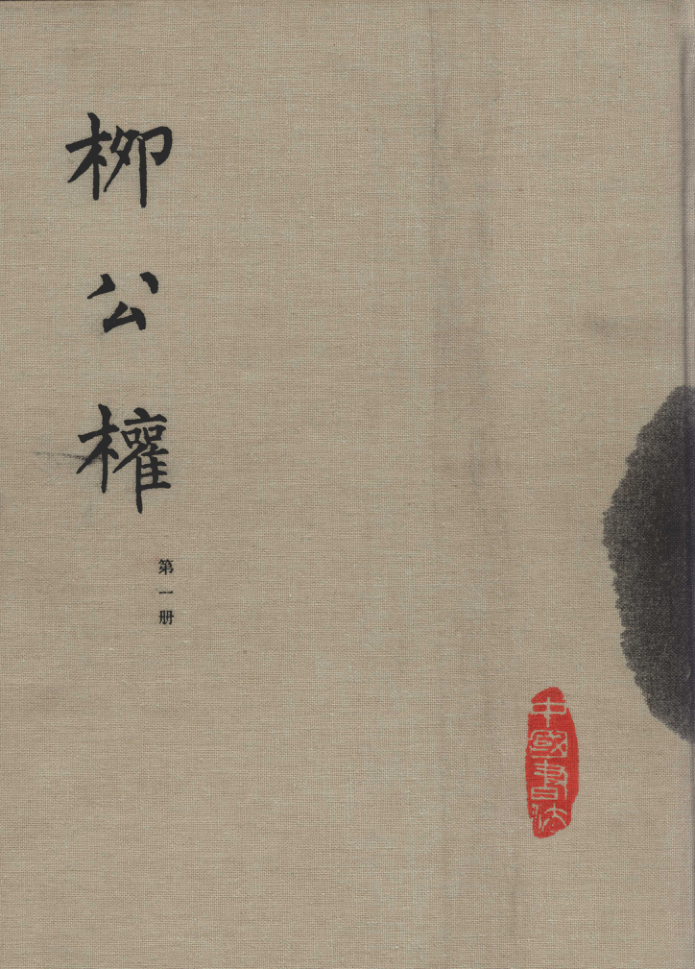 柳公權
第一册
中國書法